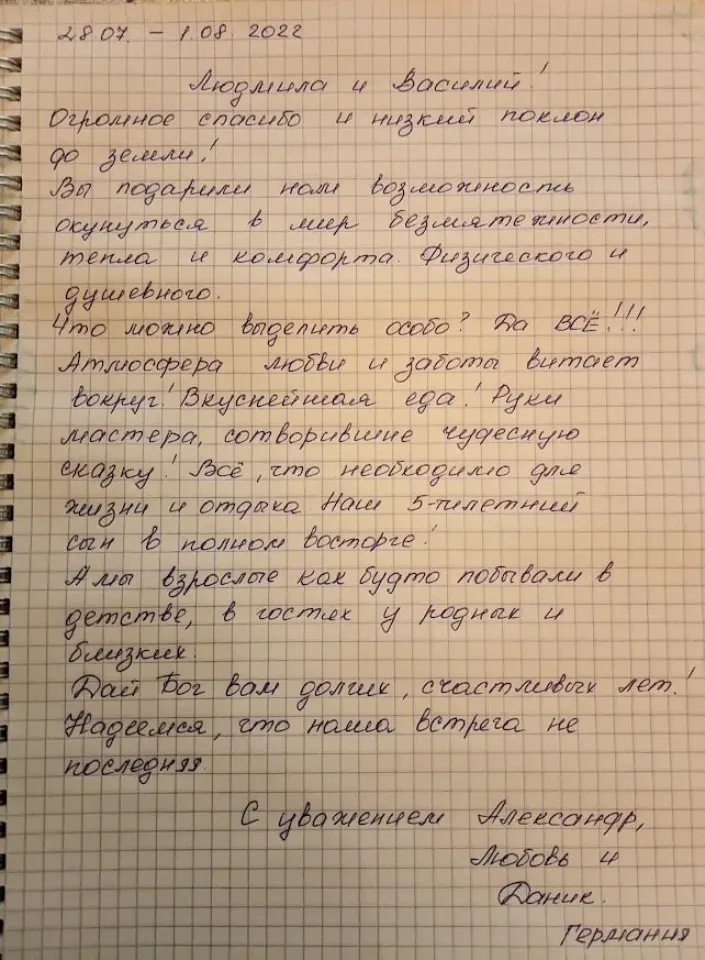 28.07. - 1.08. 2022
Людмила и Василий!
Огромное спасибо и низкий поклон
до земли!
Вы подарили нам возможность
окунуться в мир безмятежности,
тепла и комфорта. Физического и
душевного.
Что можно выделить особо? Да ВСЁ!!!
Атмосфера любви и заботы витает
вокруг! Вкуснейшая еда! Руки
мастера, сотворившие чудесную
сказку! Всё, что необходимо для
жизни и отдыха Наш 5-тилетний
сын в полном восторге!
А мы взрослые как будто побывали в
детстве, в гостях у родных и
близких.
Дай Бог вам долгих, счастливых лет!
Надеемся, что наша встреча не
последняя.
С уважением Александр,
Любовь и
Даник.
Германия